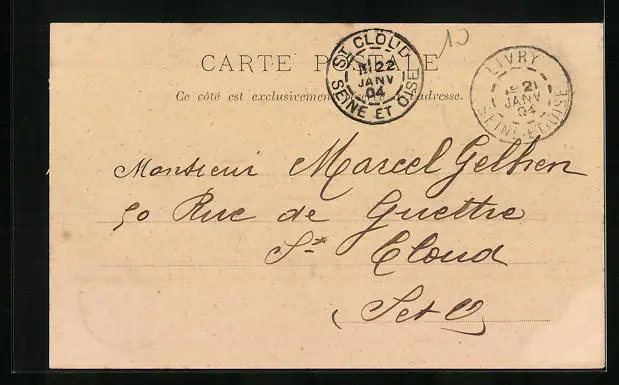 CARTE POSTALE
Ce côté est exclusivement adresse.
ST CLOUD
22
JANV
04
SEINE ET OISE
LIVRY
21
JANV
04
SEINE-ET-OISE
Monsieur Marcel
50 Rue de Guettre
St Cloud
(S et O)